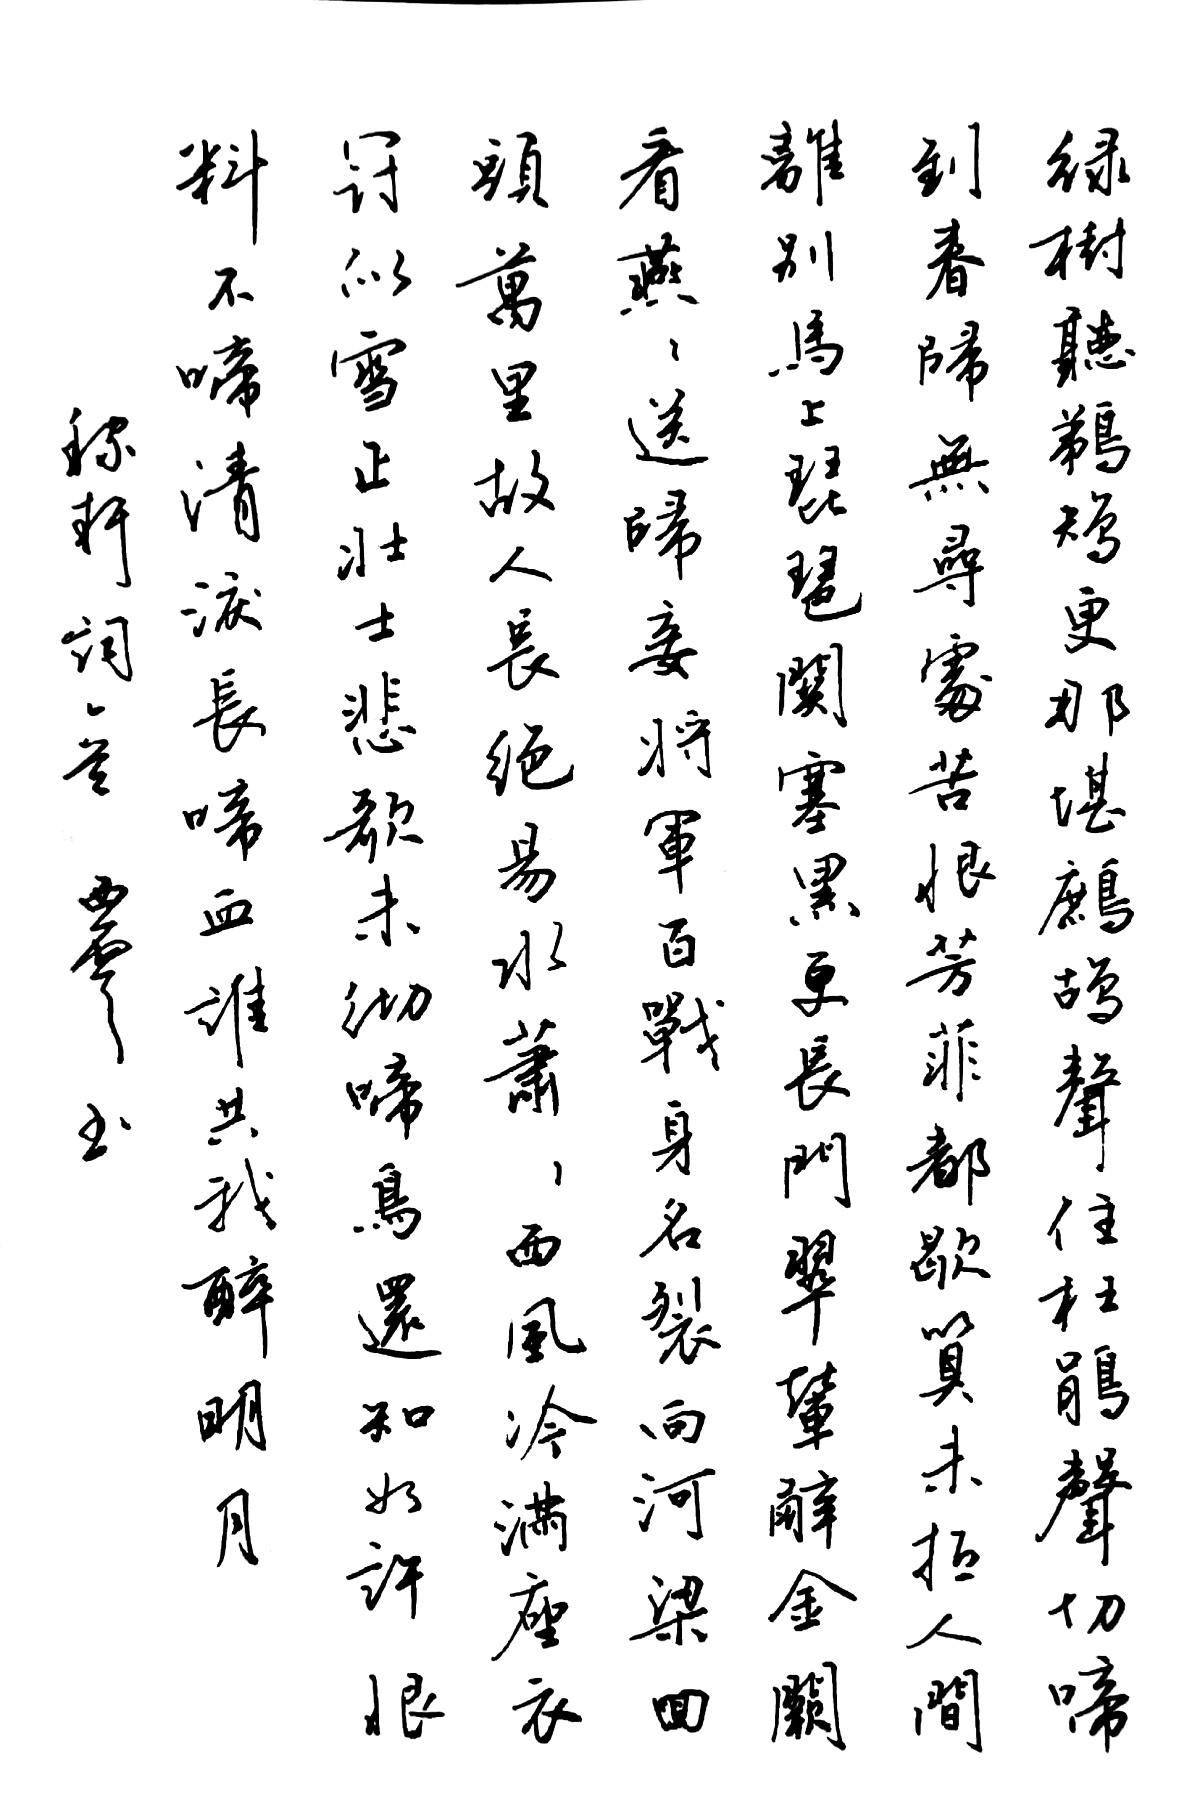 綠樹聽鵜鴂更那堪鷓鴣聲住杜鵑聲切啼
到春歸無尋處苦恨芳菲都歇算未抵人間
離別馬上琵琶關塞黑更長門翠輦辭金闕
看燕〻送歸妾將軍百戰身名裂向河梁回
頭萬里故人長絕易水蕭〻西風冷滿座衣
冠似雪正壯士悲歌未徹啼鳥還知如許恨
料不啼清淚長啼血誰共我醉明月
稼軒詞一首 西 書